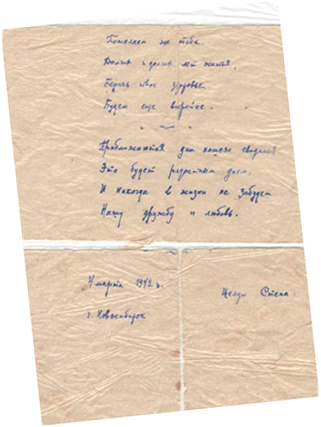 Пожелаем же тебе.
Долгих и долгих лет жизни,
Беречь твое здоровье,
Будем еще
Приближаются дни нашего свиданья
Это будет радостным днем,
И никогда в жизни не забудем
Нашу дружбу и любовь.
марта 1942 г.
г. Новосибирск
Целую Степа.